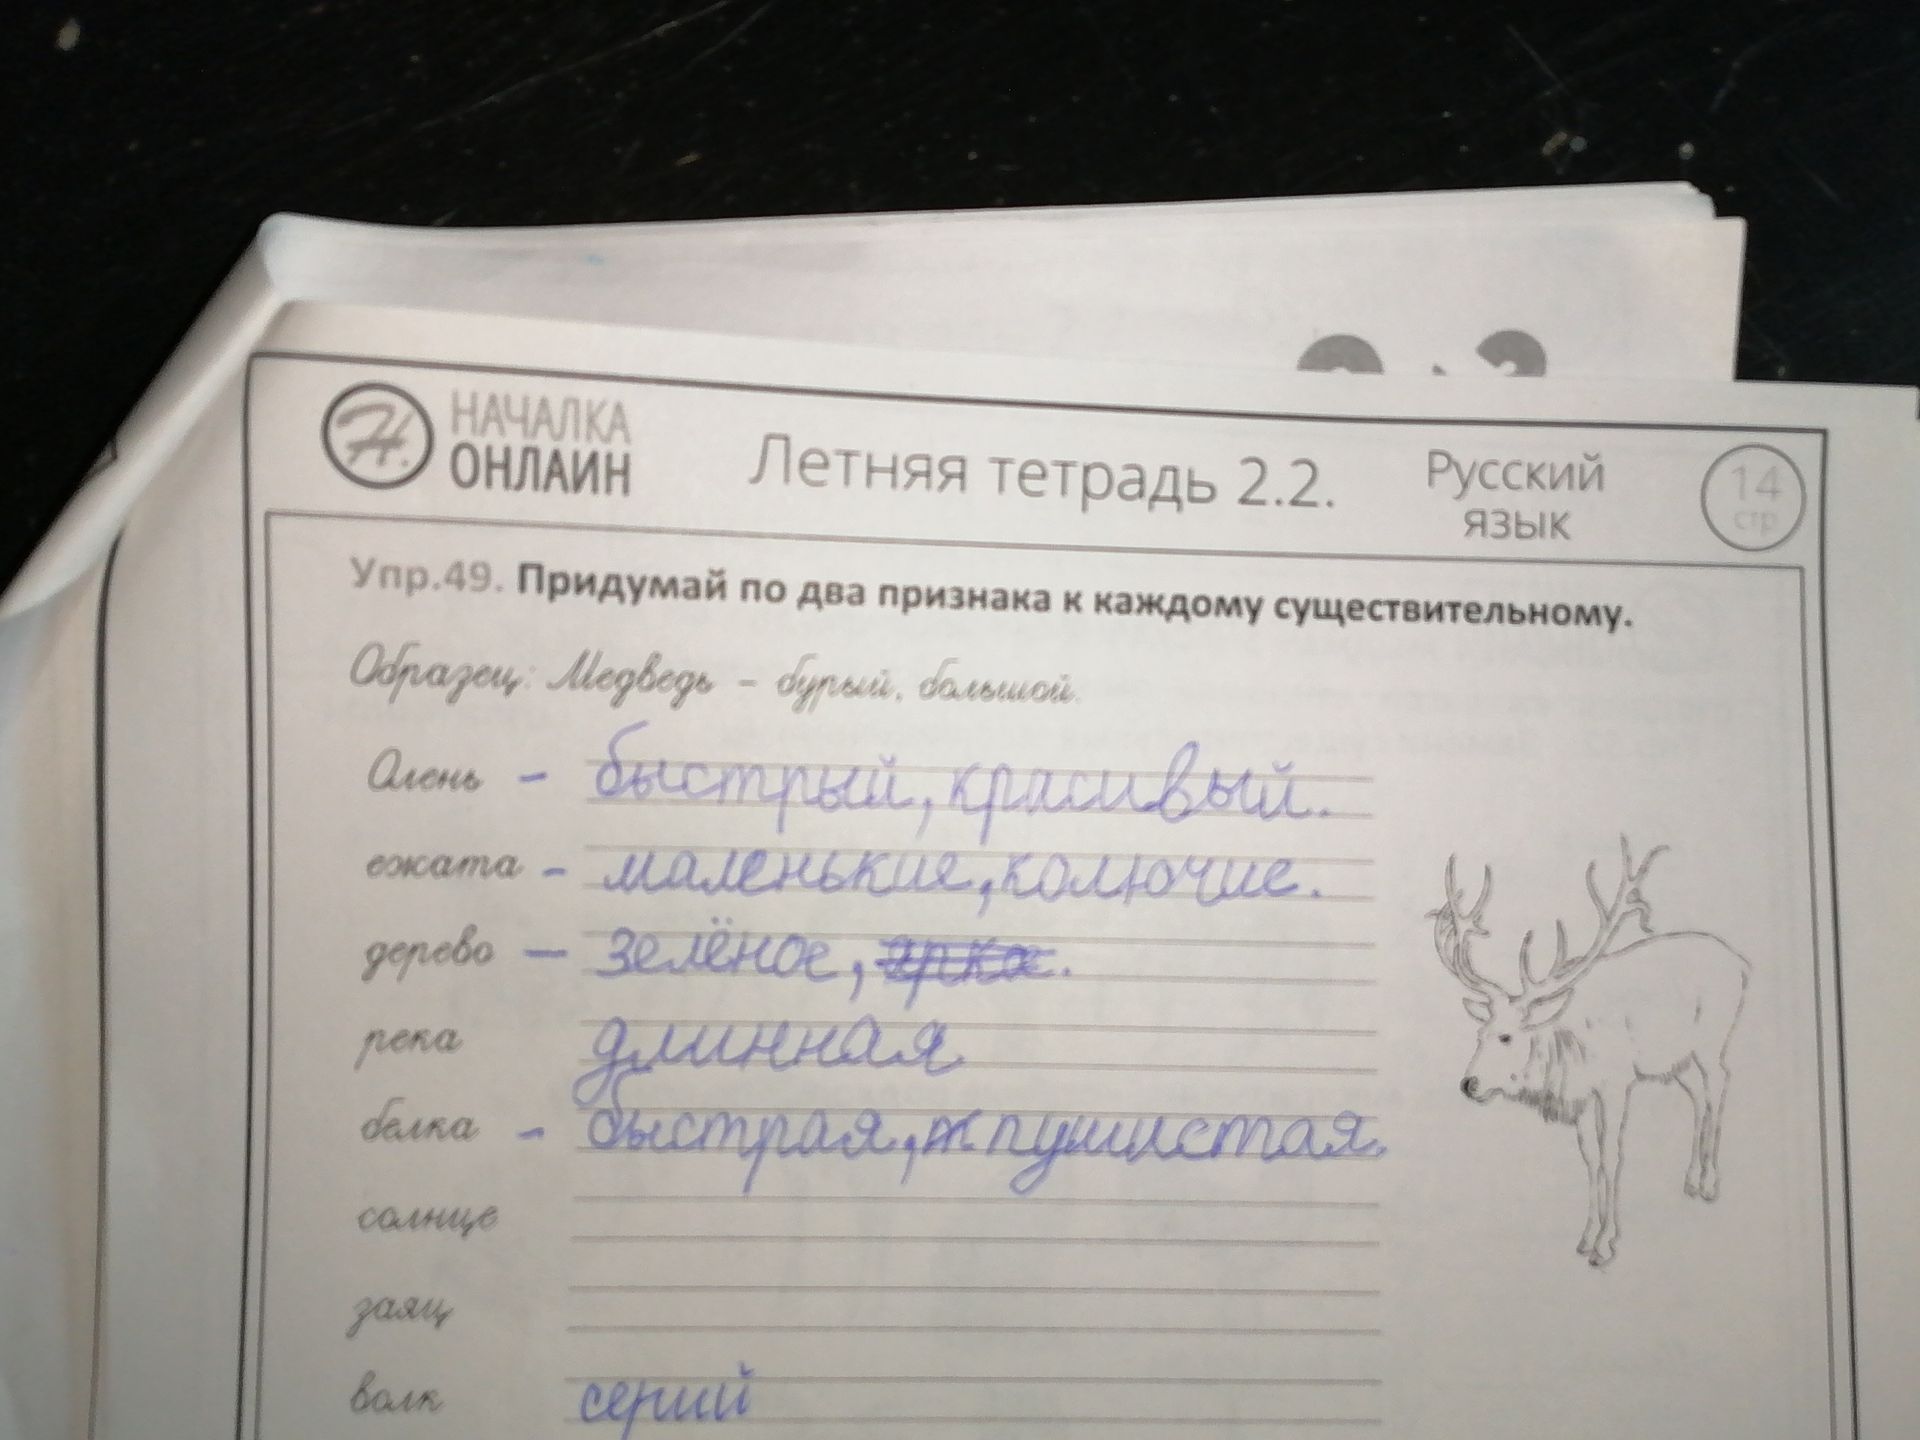 НАЧАЛКА
ОНЛАЙН
Летняя тетрадь 2.2.
Русский
язык
14
стр
Упр.49. Придумай по два признака к каждому существительному.
Образец: Медведь – бурый, большой.
Олень – быстрый, красивый.
ежата – маленькие, колючие.
дерево – зелёное,
река длинная
белка – быстрая, пушистая.
солнце
заяц
волк серий